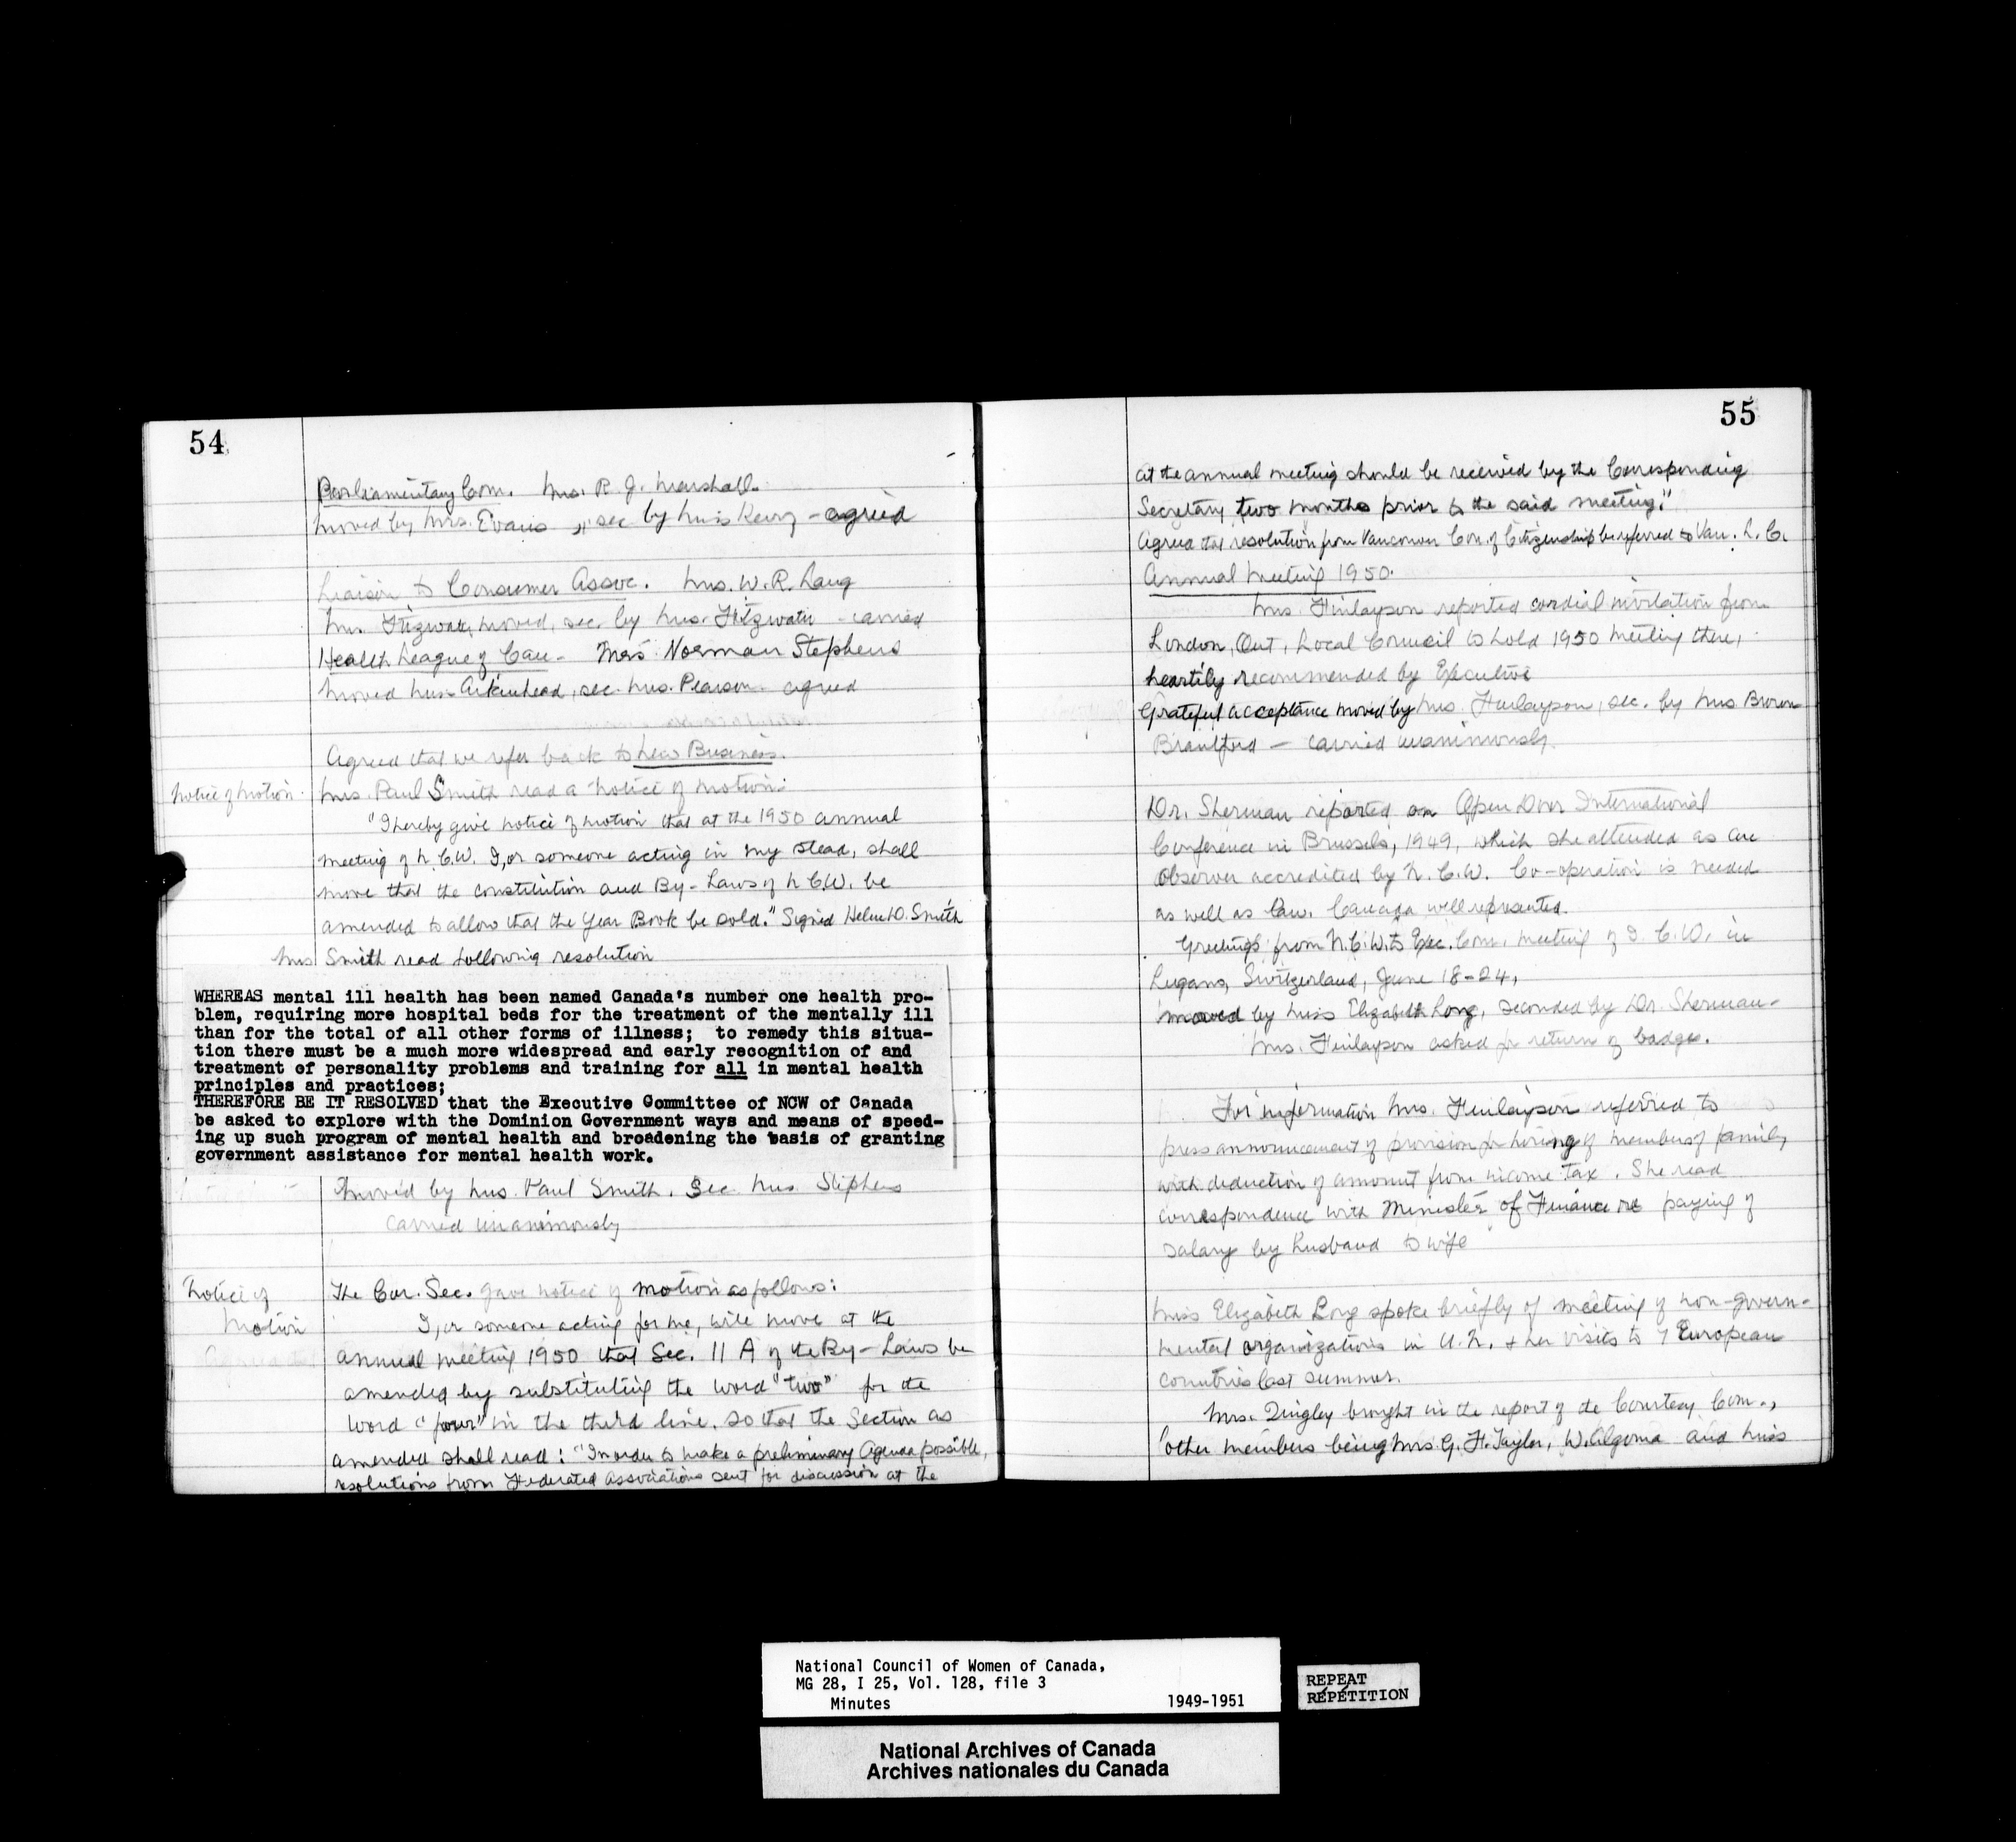 54
Parliamentary Com. Mrs. R. J. Marshall.
moved by Mrs. Evans, sec by Miss Kerry - agreed
Liaison to Consumer Assoc. Mrs. W. R. Lang
Mrs. moved, sec. by Mrs. Fitzwater - carried
Health League of Can - Mrs Norman Stephens
moved Mrs. Aikenhead, sec. Mrs. Pearson - agreed
Agreed that we refer back to New Business.
Notice of Motion
Mrs. Paul Smith read a notice of motion:
"I hereby give notice of motion that at the 1950 annual
meeting of N.C.W. I, or someone acting in my stead, shall
move that the constitution and By-Laws of N.C.W. be
amended to allow that the Year Book be sold." Signed Helen D. Smith
Mrs Smith read following resolution
WHEREAS mental ill health has been named Canada's number one health pro-
blem, requiring more hospital beds for the treatment of the mentally ill
than for the total of all other forms of illness; to remedy this situa-
tion there must be a much more widespread and early recognition of and
treatment of personality problems and training for all in mental health
principles and practices;
THEREFORE BE IT RESOLVED that the Executive Committee of NCW of Canada
be asked to explore with the Dominion Government ways and means of speed-
ing up such program of mental health and broadening the basis of granting
government assistance for mental health work.
Moved by Mrs. Paul Smith, Sec Mrs Stephens
carried unanimously
Notice of
Motion
The Cor. Sec. gave notice of motion as follows:
I, or someone acting for me, will move at the
annual meeting 1950 that Sec. 11 A of the By-Laws be
amended by substituting the word "two" for the
word "four" in the third line. so that the Section as
amended shall read: "In order to make a preliminary Agenda possible,
resolutions from Federated Associations sent for discussion at the
55
at the annual meeting should be received by the Corresponding
Secretary two months prior to the said meeting."
Agreed that resolution from Vancouver Con. of Citizenship be referred to Van. L. C.
Annual Meeting 1950.
Mrs. Finlayson reported cordial invitation from
London, Ont, Local Council to hold 1950 meeting there,
heartily recommended by Executive
Grateful acceptance moved by Mrs. Finlayson, sec. by Mrs Brown
Brantford - carried unanimously.
Dr. Sherman reported on Open Door International
Conference in Brussels, 1949, which she attended as an
observer accredited by N.C.W. Co-operation is needed
as well as law. Canada well represented.
Greetings from N.C.W. to Exec. Com. meeting of I.C.W. in
Lugano, Switzerland, June 18-24,
moved by Miss Elizabeth Long, seconded by Dr. Sherman-
Mrs. Finlayson asked for return of badges.
For information Mrs. Finlayson referred to
press announcement of provision for hiring of members of family
with deduction of amount from income tax. She read
correspondence with Minister of Finance re paying of
salary by husband to wife
Miss Elizabeth Long spoke briefly of meeting of non-govern-
mental organizations in U.N. & her visits to 7 European
countries last summer.
Mrs. Dingley brought in the report of the Courtesy Com.,
other members being Mrs. G. H. Taylor, W. Algoma and Miss
National Council of Women of Canada,
MG 28, I 25, Vol. 128, file 3
Minutes 1949-1951
REPEAT
RÉPÉTITION
National Archives of Canada
Archives nationales du Canada